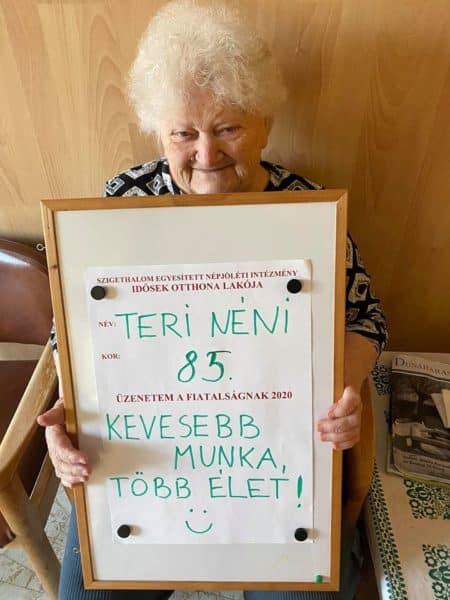 SZIGETHALOM EGYESÍTETT NÉPJÓLÉTI INTÉZMÉNY
IDŐSEK OTTHONA LAKÓJA
NÉV: TERI NÉNI
KOR: 85.
ÜZENETEM A FIATALSÁGNAK 2020
KEVESEBB
MUNKA,
TÖBB ÉLET!
DUNAHARAS